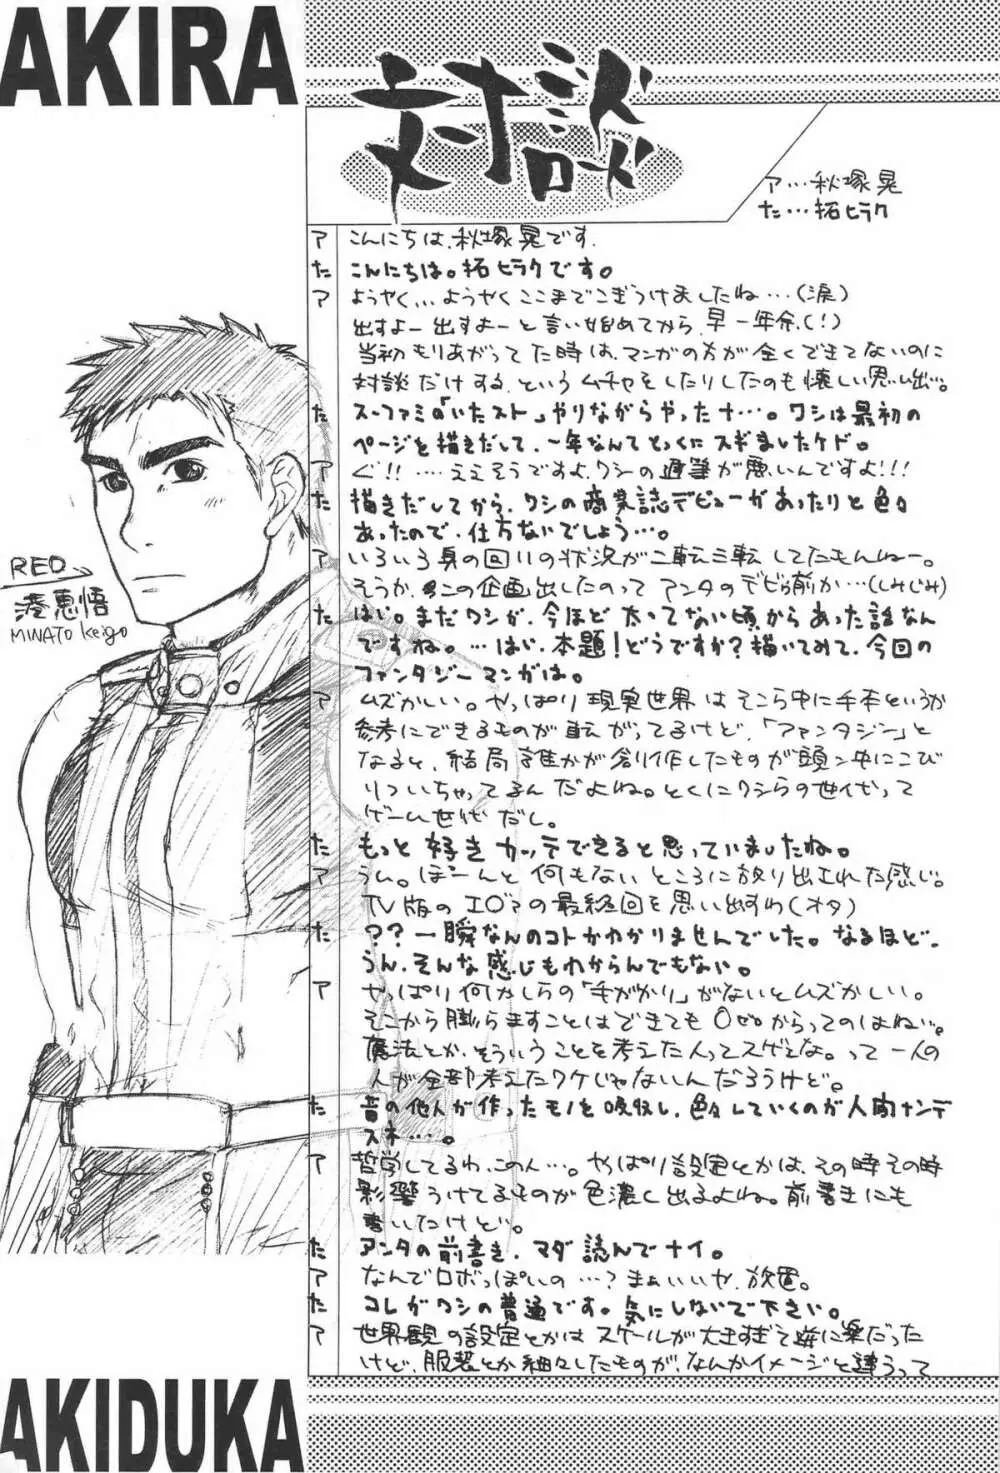 AKIRA
対談
ロード
ア…秋塚晃
た…拓ヒラク
ア こんにちは、秋塚晃です。
た こんにちは。拓ヒラクです。
ア ようやく…ようやくここまでこぎつけましたね…(涙)
出すよー出すよーと言い始めてから、早一年余、(！)
当初もりあがってた時は、マンガの方が全くできてないのに
対談だけする、というムチャをしたりしたのも懐しい思い出。
た スーファミ「いたスト」やりながらやったナ…。ワシは最初の
ページを描きだして、一年なんてとっくにスギましたケド。
ア ぐ!!…ええそうですよ、ワシの遅筆が悪いんですよ!!!
た 描きだしてから、ワシの商業誌デビューがあったりと色々
あったので、仕方ないでしょう…。
ア いろいろ身の回りの状況が二転三転してたもんねー。
そうか、この企画出したのってアンタのデビュー前か…(しみじみ)
た はい。まだワシが、今ほど太ってない頃からあった話なん
ですね。…はい、本題！どうですか？描いてみて、今回の
ファンタジーマンガは。
ア ムズかしい。やっぱり現実世界はそこら中に手本というか
参考にできるものが転がってるけど、「ファンタジー」と
なると、結局誰かが創作したものが頭ン中にこび
りついちゃってるんだよね。とくにワシらの世代って
ゲーム世代だし。
た もっと好きカッテできると思っていましたね。
ア うむ。ぽーんと何もないところに放り出された感じ。
TV版のエ○ァの最終回を思い出すわ(オタ)
た ？？一瞬なんのコトかわかりませんでした。なるほど、
うん、そんな感じもわからんでもない。
ア やっぱり何かしらの「手がかり」がないとムズかしい。
そこから膨らますことはできても0からってのはねぃ。
魔法とか、そういうことを考えた人ってスゲェな。って一人の
人が全部考えたワケじゃないんだろうけど。
た 昔の他人が作ったモノを吸収し、色々していくのが人間ナンデ
スネ…。
ア 哲学してるわ、この人…。やっぱり設定とかは、その時その時
影響うけてるものが色濃く出るよね。前書きにも
書いたけど。
た アンタの前書き、マダ読んでナイ。
ア なんでロボっぽいの…？まぁいいや、放置。
た コレがワシの普通です。気にしないで下さい。
ア 世界観の設定とかはスケールが大きすぎて逆に楽だった
けど、服装とか細々したものが、なんかイメージと違うって
RED
湊恵悟
MINATO Keigo
AKIDUKA